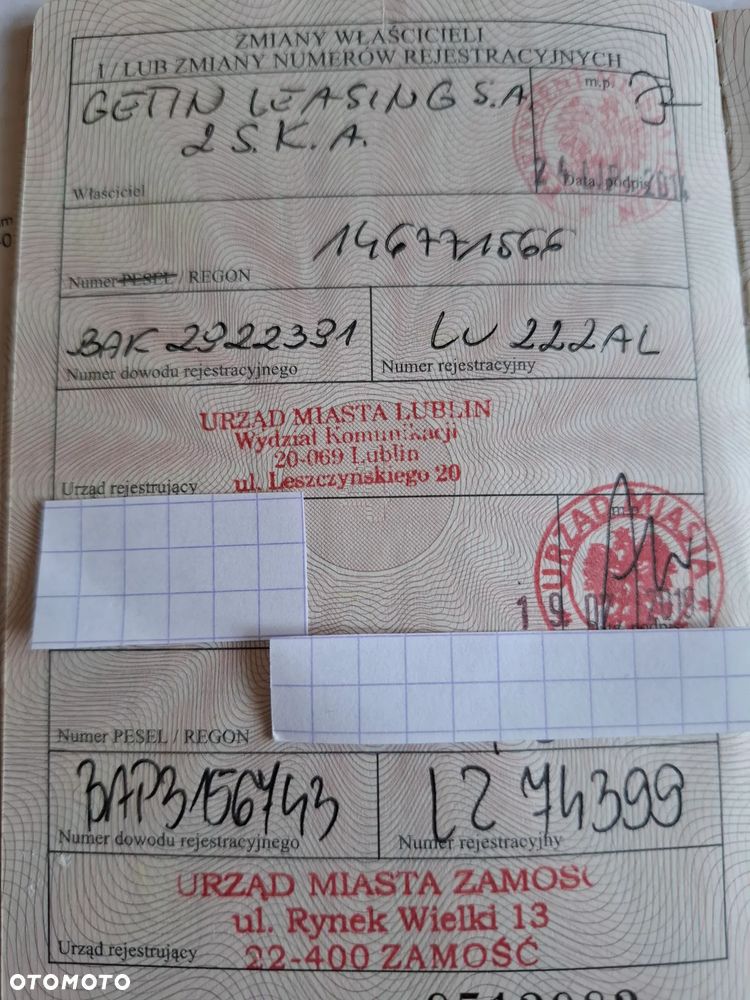 ZMIANY WŁAŚCICIELI
I / LUB ZMIANY NUMERÓW REJESTRACYJNYCH
GETIN LEASING S.A.
2 S.K.A.
m.p.
Data, podpis
Właściciel
146771566
Numer PESEL / REGON
BAK 2922391
LU 222AL
Numer dowodu rejestracyjnego
Numer rejestracyjny
URZĄD MIASTA LUBLIN
Wydział Komunikacji
20-069 Lublin
ul. Leszczyńskiego 20
Urząd rejestrujący
URZĄD MIASTA
Numer PESEL / REGON
BAP3156743
LZ 74399
Numer dowodu rejestracyjnego
Numer rejestracyjny
URZĄD MIASTA ZAMOŚĆ
ul. Rynek Wielki 13
22-400 ZAMOŚĆ
Urząd rejestrujący
OTOMOTO